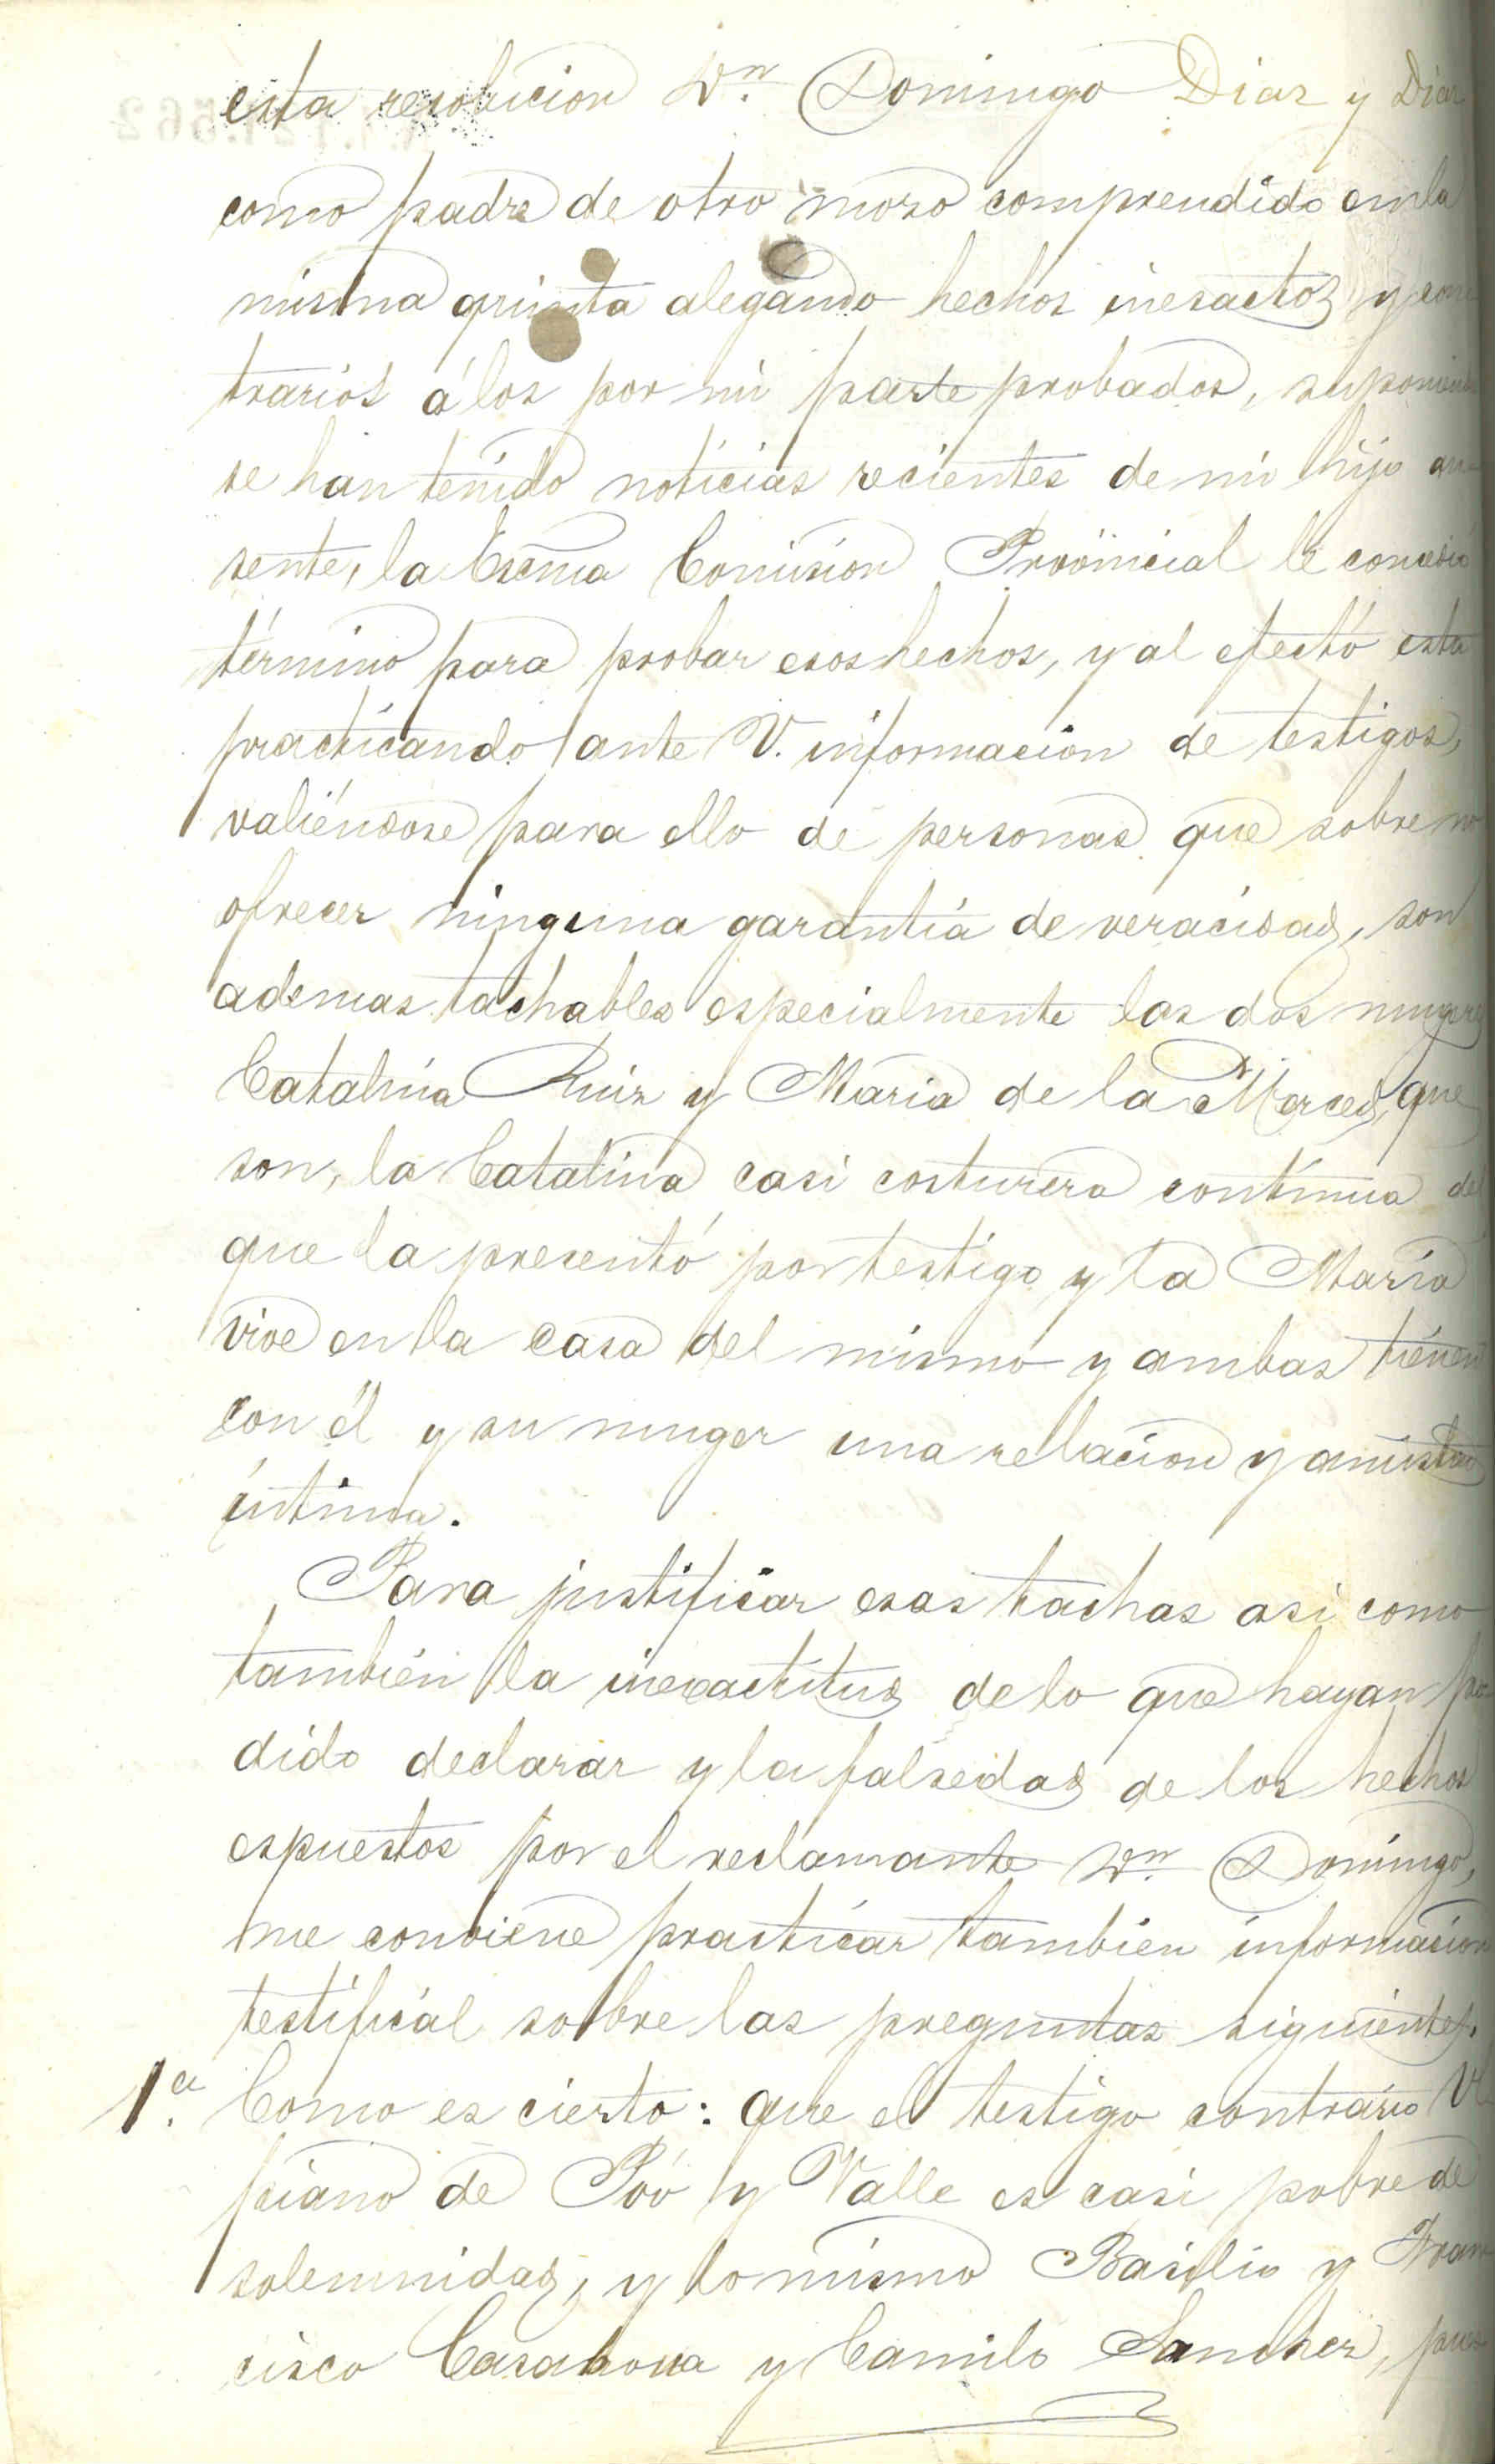 esta resolucion Dn. Domingo Diaz y Diaz
como padre de otro moso comprendido en la
misma quinta alegando hechos inesactos y con
trarios á los por mi parte probados, suponiendo
se han tenido noticias recientes de mi hijo au-
sente, la Escma Comision Provincial le concedió
término para probar esos hechos, y al efectó está
practicando ante V. informacion de testigos,
valiéndose para ello de personas que sobre no
ofrecer ninguna garantía de veracidad, son
ademas tachables especialmente las dos mugeres
Catalina Ruiz y Maria de la Merced, que
son, la Catalina casi costurera contínua del
que la presentó por testigo y la María
vive en la casa del mismo y ambas tienen
con él y su muger una relacion y amistad
íntima.
Para justificar esas tachas asi como
también la inexactitud de lo que hayan po-
dido declarar y la falsedad de los hechos
espuestos por el reclamante Dn. Domingo,
me conviene practicar tambien informacion
testifical sobre las preguntas siguientes.
1.a Como es cierto: que el testigo contrario Ul
piano de Poó y Valle es casi pobre de
solemnidad, y lo mismo Basilio y Fran
cisco Casanova y Camilo Sanchez, pues